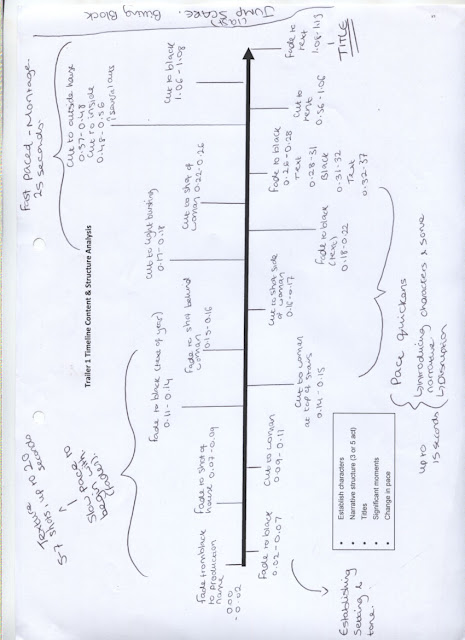 Fast paced - Montage
25 seconds
5-7 shots, up to seconds
slow pace to
begin with
Trailer 1 Timeline Content & Structure Analysis
JUMP SCARE.
Buing Block
Fade from black
to production
name
0.00
-0.02
Fade to shot of
house 0.07-0.09
Fade to black (time of year)
0.11-0.14
Fade to shot behind
woman 0.15-0.16
Cut to light bursting
0.17-0.18
Cut to shot of
woman 0.22-0.26
Cut to outside house
0.37-0.48
Cut to inside
0.48-0.56
Cut to black
1.06-1.08
Fade to black
0.02-0.07
Cut to woman
0.09-0.11
Cut to woman
at top of stairs
0.14-0.15
Cut to shot side
of woman
0.16-0.17
Fade to black
(text)
0.18-0.22
Fade to black
0.26-0.28
Text
0.28-31
Black
0.31-32
Text
0.32-37
Cut to
text
0.56-1.06
Fade to
text
1.08-1.13
TITLE
Establishing
Setting &
tone.
• Establish characters
• Narrative structure (3 or 5 act)
• Titles
• Significant moments
• Change in pace
up to
15 seconds
Pace quickens
Introducing characters & some
narrative
Disruption